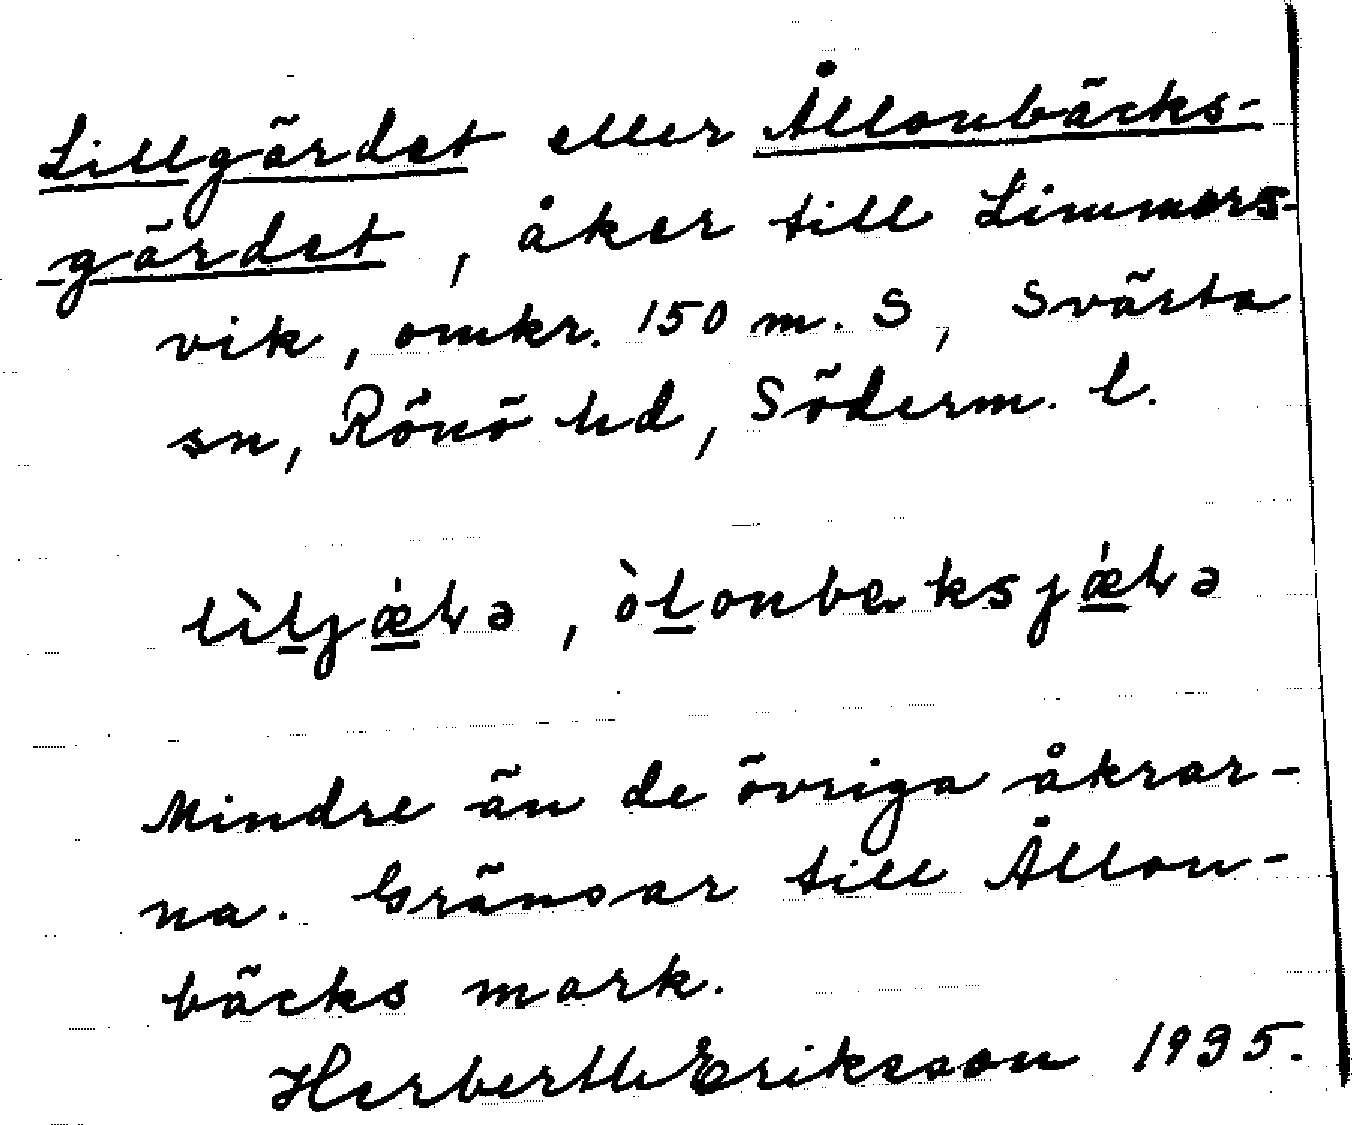 Lillgärdet eller Ållonbäcks-
gärdet, åker till Limmers-
vik, omkr. 150 m. S, Svärta
sn, Rönö hd, Söderm. l.
Mindre än de övriga åkrar-
na. Gränsar till Ållon-
bäcks mark.
Herberth Eriksson 1935.